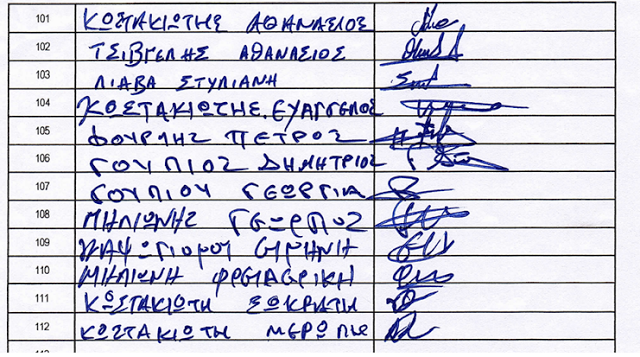 101 ΚΩΣΤΑΚΙΩΤΗΣ ΑΘΑΝΑΣΙΟΣ
102 ΤΣΙΒΓΕΛΗΣ ΑΘΑΝΑΣΙΟΣ
103 ΛΙΑΒΑ ΣΤΥΛΙΑΝΗ
104 ΚΩΣΤΑΚΙΩΤΗΣ ΕΥΑΓΓΕΛΟΣ
105 ΦΟΥΡΛΗΣ ΠΕΤΡΟΣ
106 ΓΟΥΠΙΟΣ ΔΗΜΗΤΡΙΟΣ
107 ΓΟΥΠΙΟΥ ΓΕΩΡΓΙΑ
108 ΜΗΛΙΩΝΗΣ ΓΕΩΡΓΙΟΣ
109 ΕΙΡΗΝΗ
110 ΜΗΛΙΩΝΗ ΦΡΕΙΔΕΡΙΚΗ
111 ΚΩΣΤΑΚΙΩΤΗ ΣΩΚΡΑΤΗ
112 ΚΩΣΤΑΚΙΩΤΗ ΜΕΡΟΠΗ